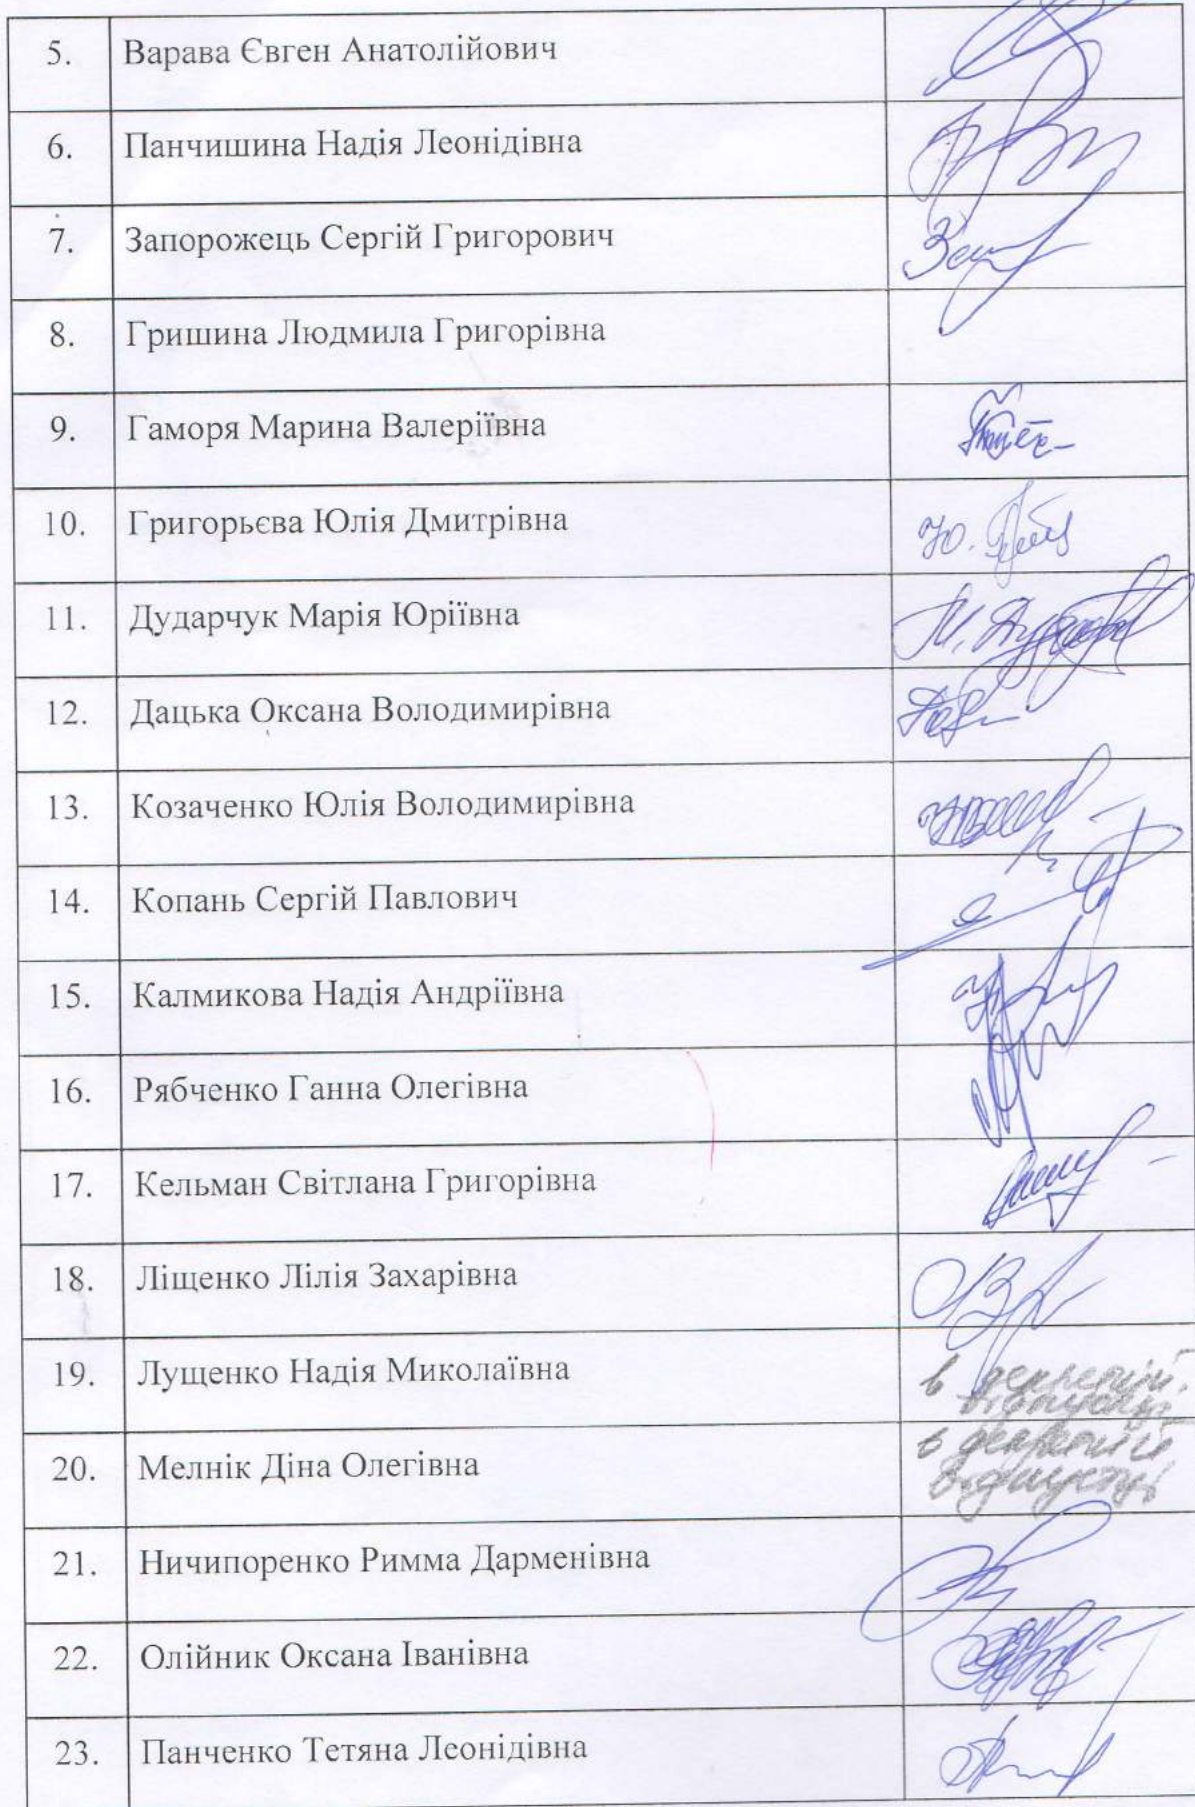 5. Варава Євген Анатолійович
6. Панчишина Надія Леонідівна
7. Запорожець Сергій Григорович
8. Гришина Людмила Григорівна
9. Гаморя Марина Валеріївна
10. Григорьєва Юлія Дмитрівна
11. Дударчук Марія Юріївна
12. Дацька Оксана Володимирівна
13. Козаченко Юлія Володимирівна
14. Копань Сергій Павлович
15. Калмикова Надія Андріївна
16. Рябченко Ганна Олегівна
17. Кельман Світлана Григорівна
18. Ліщенко Лілія Захарівна
19. Лущенко Надія Миколаївна в
20. Мелнік Діна Олегівна в декретній
відпустці
21. Ничипоренко Римма Дарменівна
22. Олійник Оксана Іванівна
23. Панченко Тетяна Леонідівна